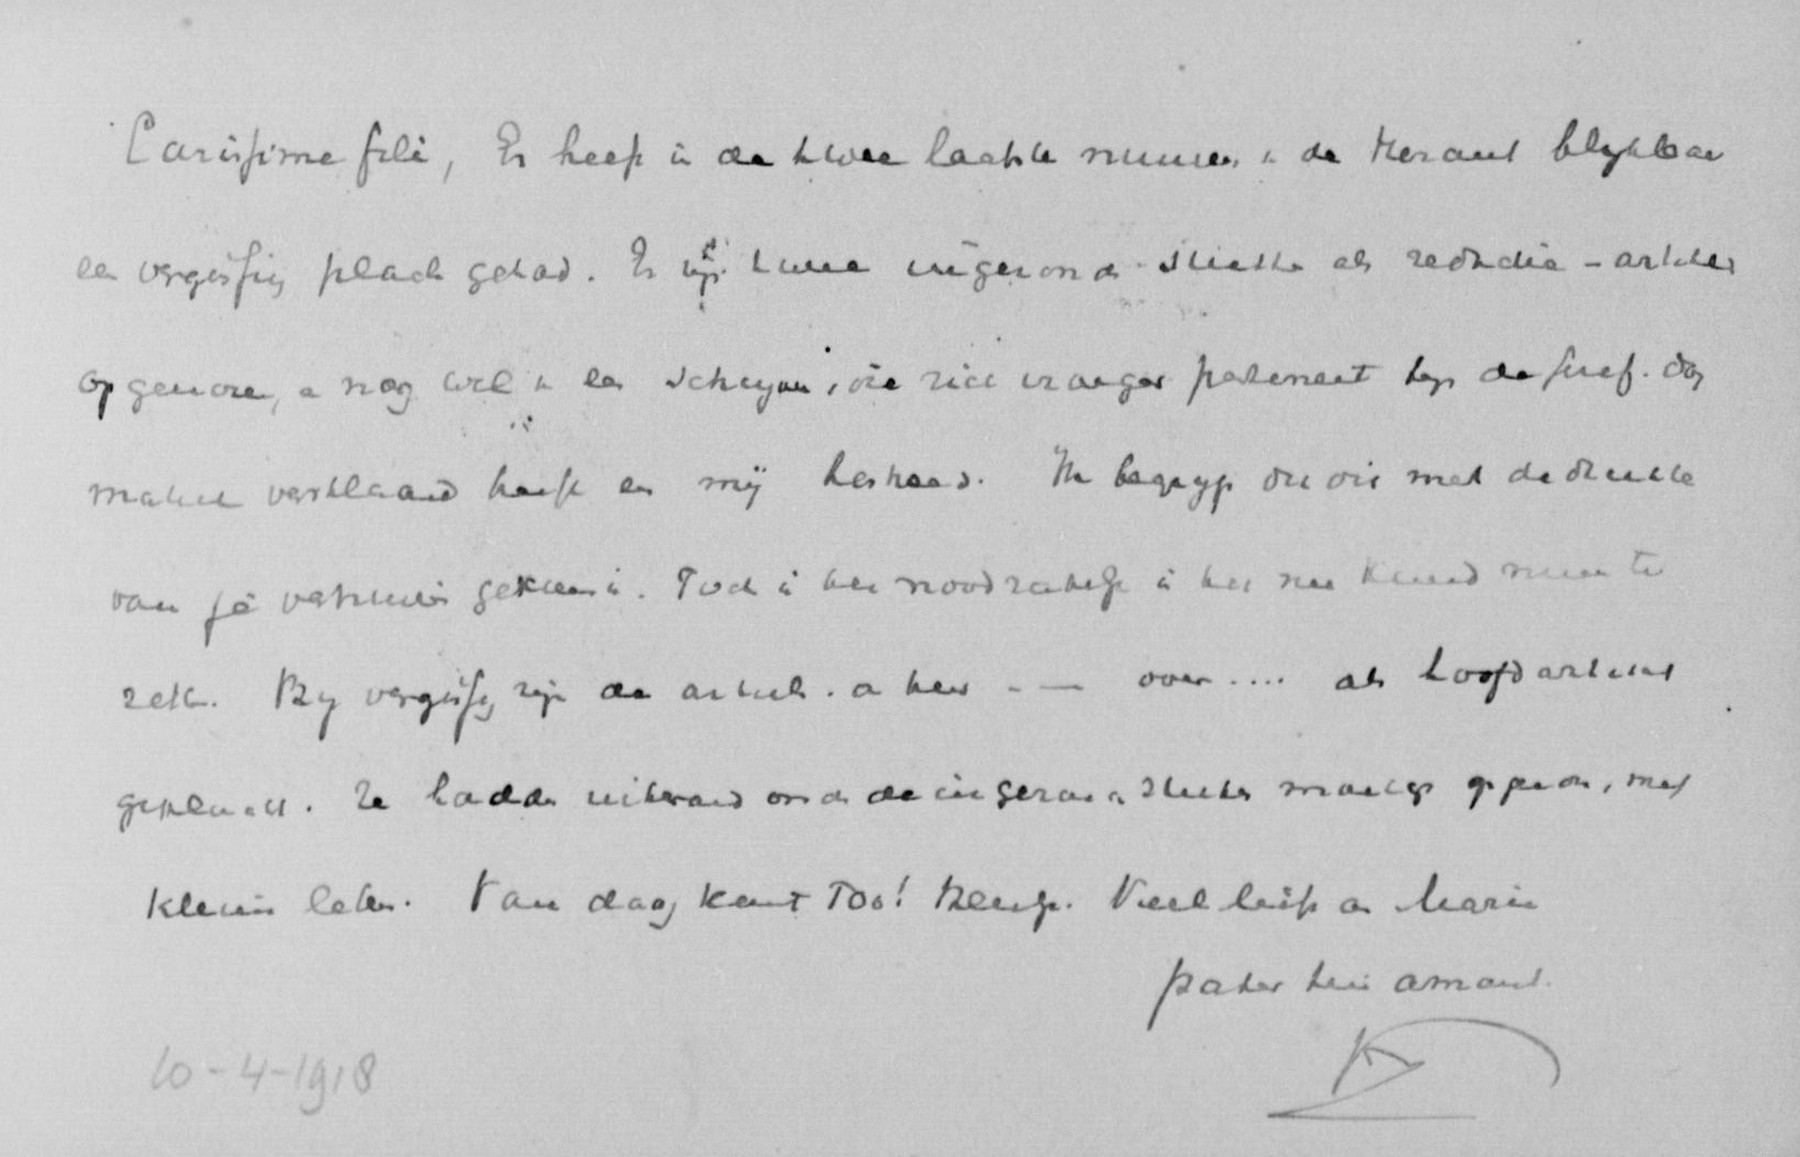 Carissime fili, Er heeft in de twee laatste nummers in de Heraut blykbaar
een vergissing plaats gehad. Er zijn twee ingezonden stukken als redactie-artikelen
opgenomen, en nog wel van een schryver, die zich vroeger
verklaard heeft en mij bestreed. Ik begryp dat dit met de drukte
van je verhuizing gekomen is. Toch is het noodzakelyk in het nummer te
zetten. By vergissing zyn de artikels van den -- — over .... als hoofdartikel
geplaatst. Ze hadden uiteraard onder de ingezonden stukken moeten opgenomen, met
kleine letter. Van daag komt Too! Veel liefs aan Marie
pater tuus amans.
K
10-4-1918